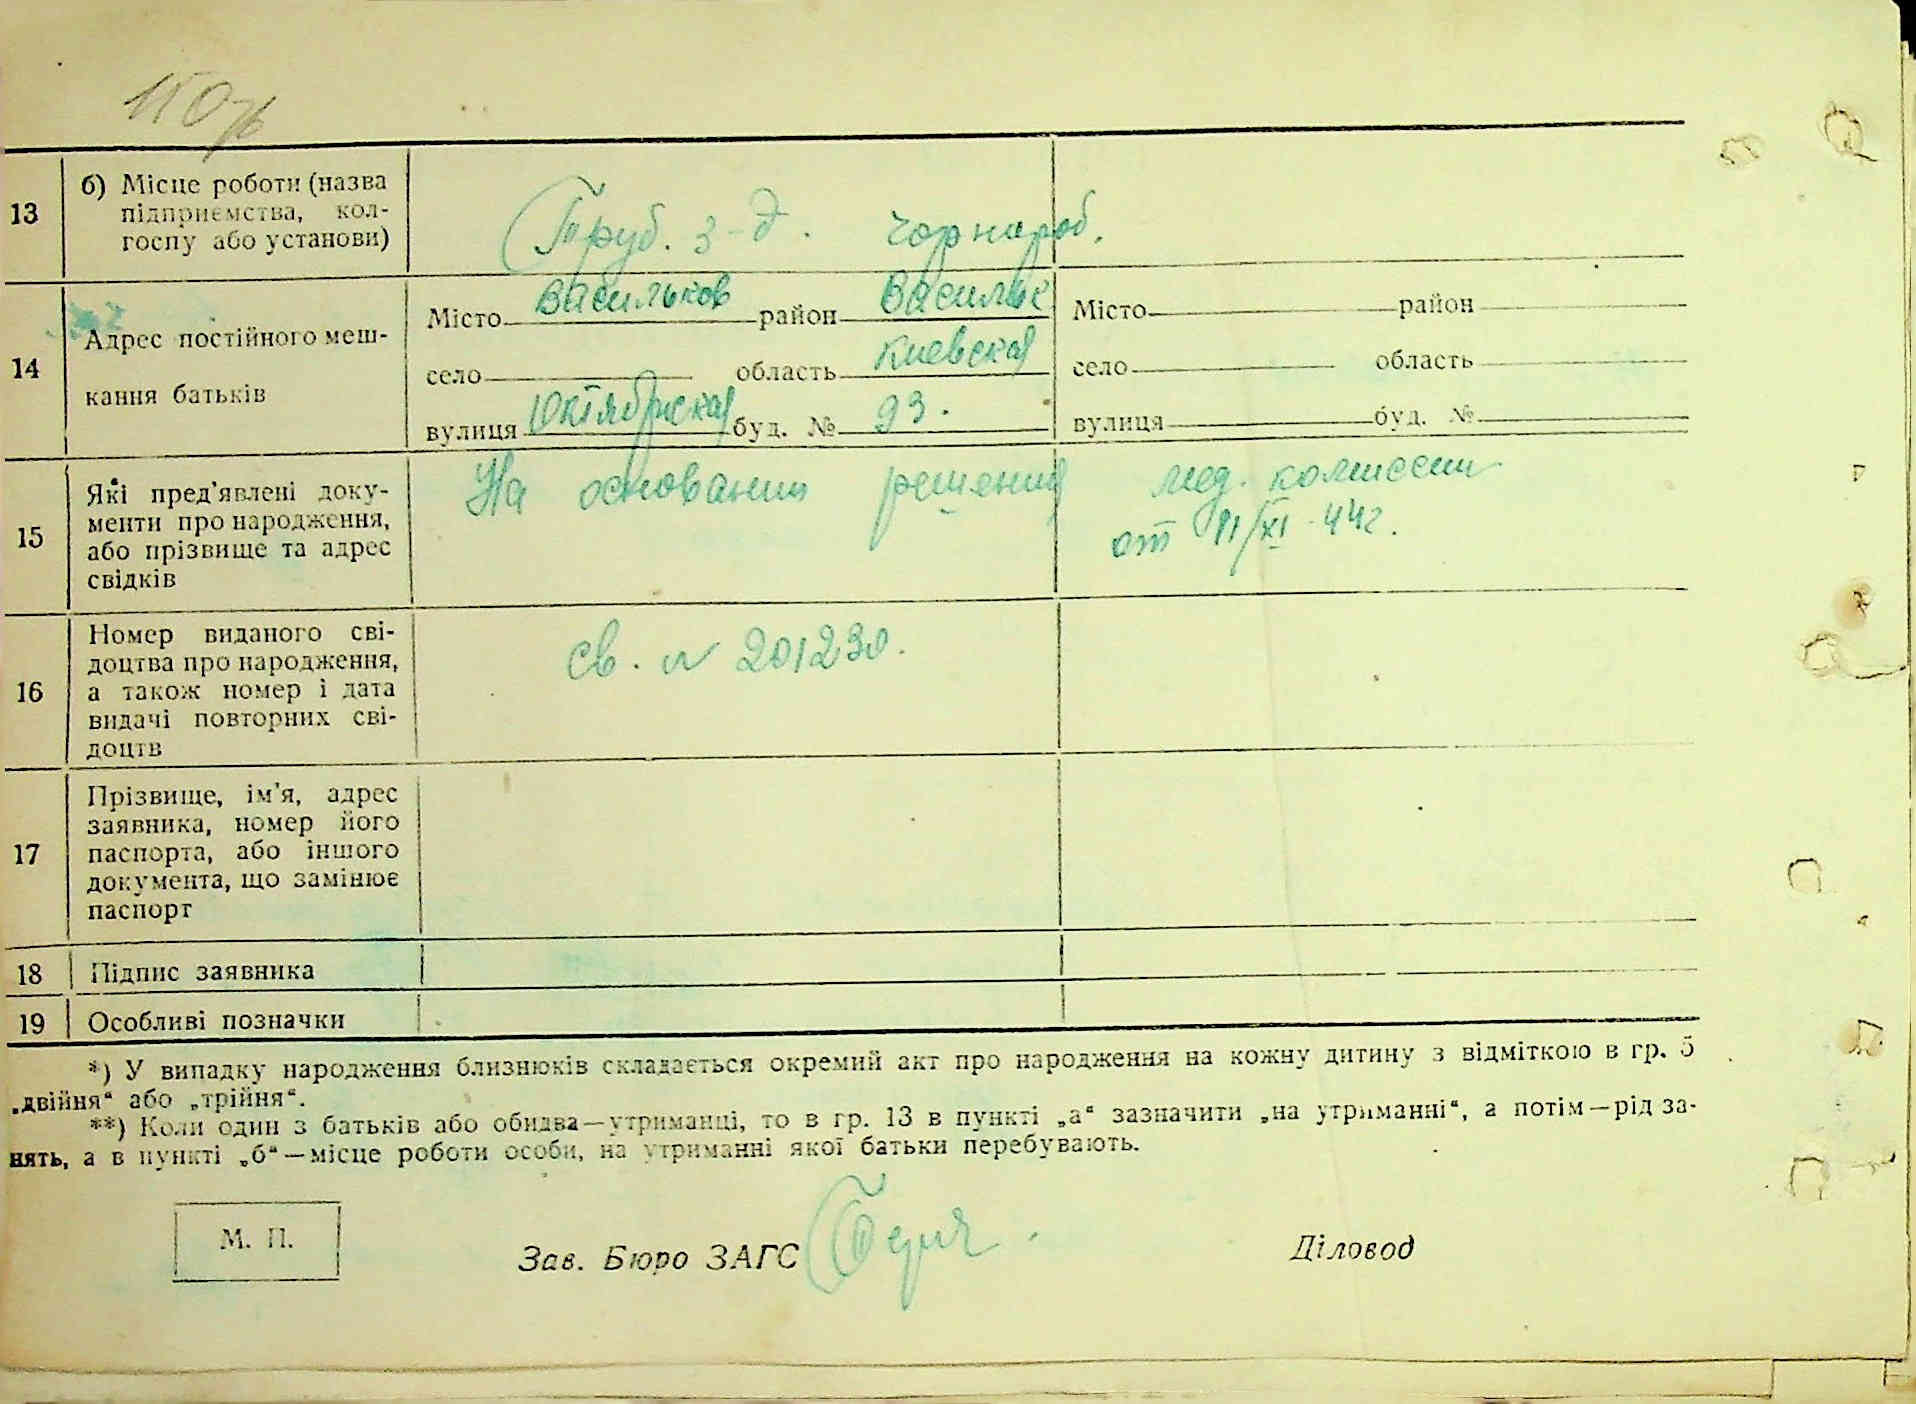 13 б) Місце роботи (назва
підприємства, кол-
госпу або установи)
Труб. з-д. чорнароб.
14 Адрес постійного меш-
кання батьків
Місто Васильков район Васильк
село область Киевская
вулиця Октябрьская буд. № 93.
Місто район
село область
вулиця буд. №
15 Які пред'явлені доку-
менти про народження,
або прізвище та адрес
свідків
На основании решения мед. комиссии
от 11/XI-44г.
16 Номер виданого сві-
доцтва про народження,
а також номер і дата
видачі повторних сві-
доцтв
св. № 201230.
17 Прізвище, ім'я, адрес
заявника, номер його
паспорта, або іншого
документа, що замінює
паспорт
18 Підпис заявника
19 Особливі позначки
*) У випадку народження близнюків складається окремий акт про народження на кожну дитину з відміткою в гр. 5
„двійня“ або „трійня“.
**) Коли один з батьків або обидва—утриманці, то в гр. 13 в пункті „а“ зазначити „на утриманні“, а потім—рід за-
нять, а в пункті „б“—місце роботи особи, на утриманні якої батьки перебувають.
М. П.
Зав. Бюро ЗАГС
Діловод